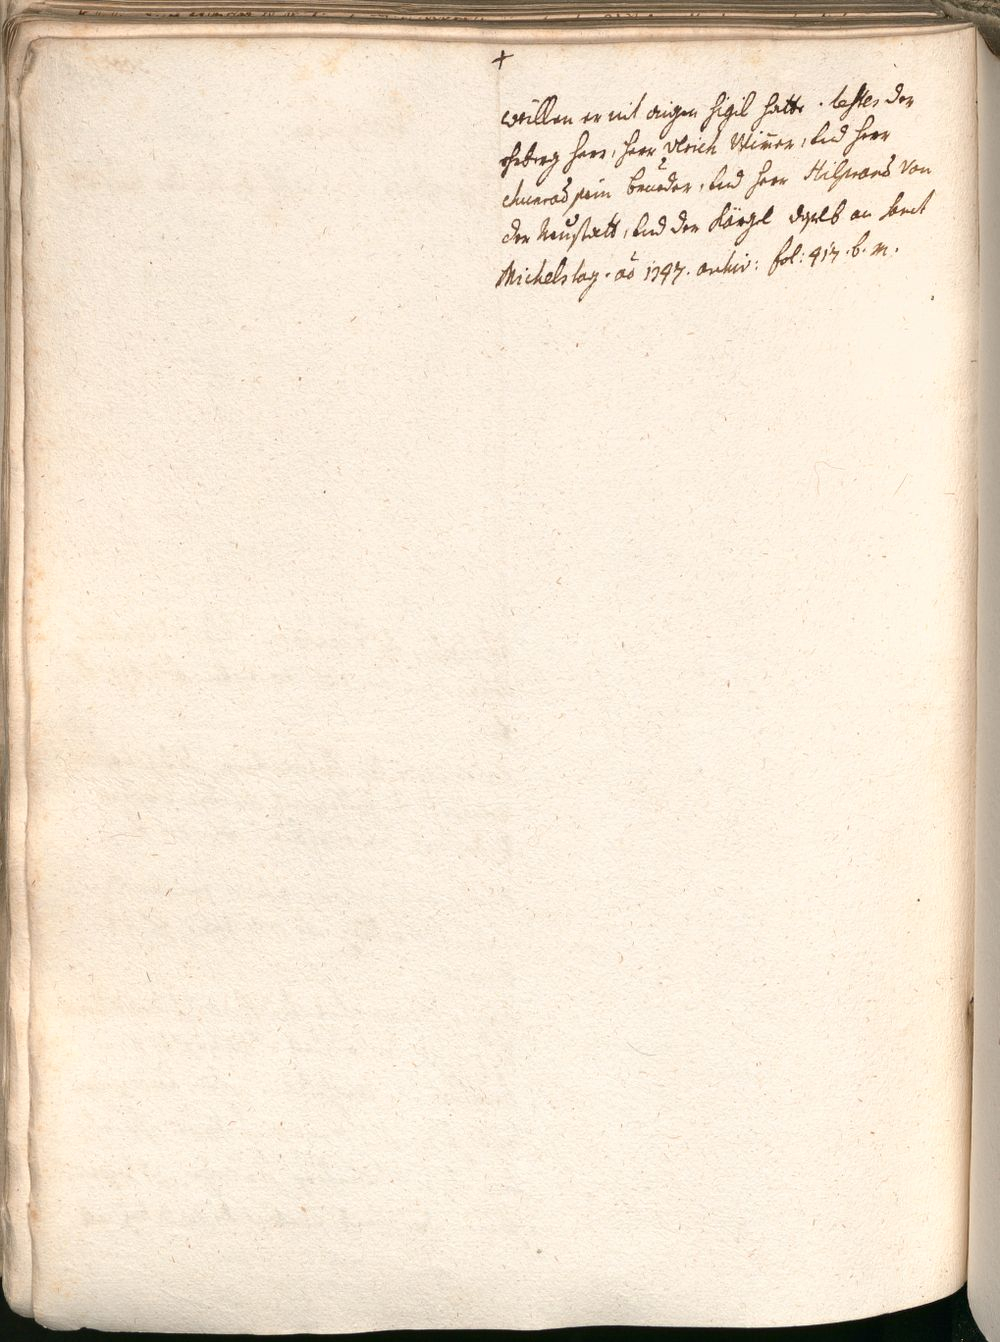 +
weillen er nit aigen sigil hatte. testes der
herr, herr Ulrich Wim̄er, und herr
chunrad sein brueder, und herr Hilprand von
der Neustatt, und der Kärgl an sant
Michelstag. ao 1347. arhiv: fol: 417. b. m.